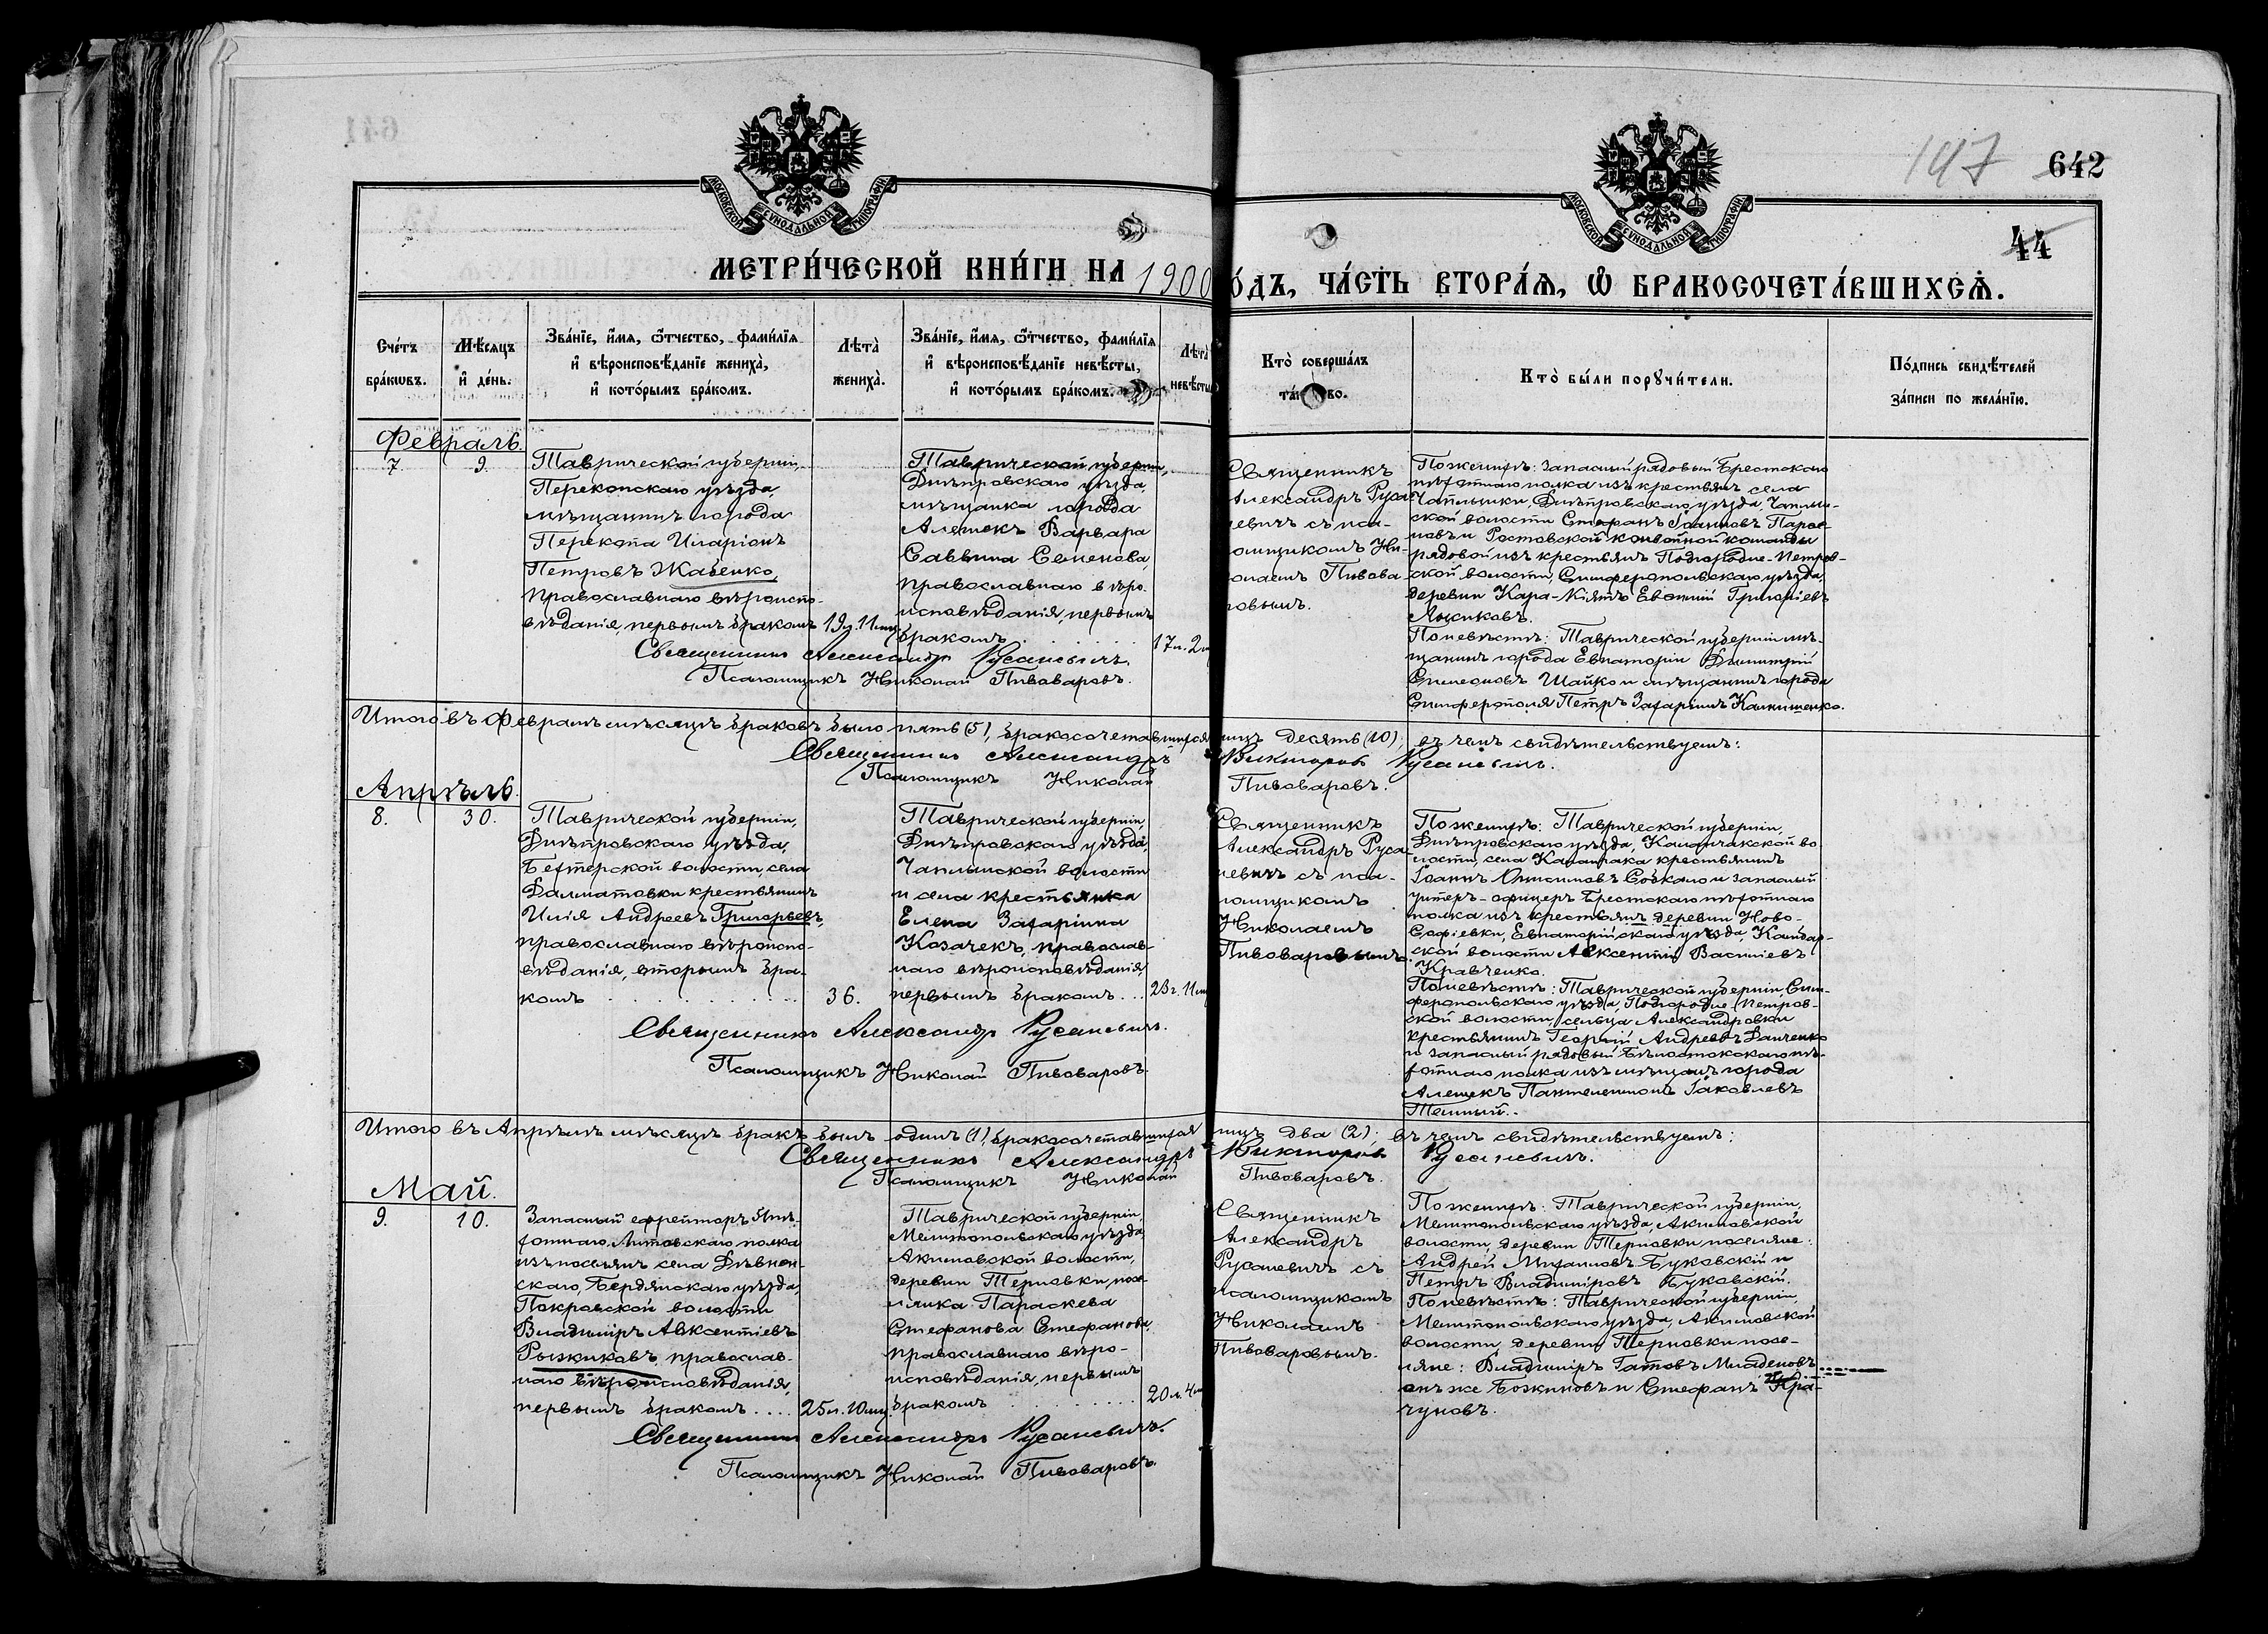 641
147
642
44
МОСКОВСКОЙ СѴНОДАЛЬНОЙ ТИПОГРАФІИ
МОСКОВСКОЙ СѴНОДАЛЬНОЙ ТИПОГРАФІИ
МЕТРИ́ЧЕСКОЙ КНИ́ГИ НА 1900 ГО́ДЪ, ЧА́СТЬ ВТОРА́Ѧ, Ѡ҆ БРАКОСОЧЕТА́ВШИХСѦ.
Сче́тъ бра́кѡвъ.
Мѣ́сѧцъ и҆ де́нь.
Зва́нїе, и҆́мѧ, ѻ҆́тчество, фами́лїѧ
и҆ вѣроисповѣ́данїе жениха̀,
и҆ кото́рымъ бра́комъ.
Лѣта̀ жениха̀.
Зва́нїе, и҆́мѧ, ѻ҆́тчество, фами́лїѧ
и҆ вѣроисповѣ́данїе невѣ́сты,
и҆ кото́рымъ бра́комъ.
Лѣта̀ невѣ́сты
Кто̀ соверша́лъ
та́инство.
Кто̀ бы́ли порꙋчи́тели.
По́дпись свидѣ́телей
за́писи по жела́нїю.
Февраль.
7.
9.
Таврической губерніи,
Перекопскаго уѣзда,
мѣщанинъ города
Перекопа Иларіонъ
Петровъ Жабенко,
православнаго вѣроиспо-
вѣданія, первымъ бракомъ
19 л. 11 мц.
Таврической губерніи,
Днѣпровскаго уѣзда,
мѣщанка города
Алешекъ Варвара
Саввина Семенова,
православнаго вѣро-
исповѣданія, первымъ
бракомъ
17 л. 2 м
Священникъ
Александръ Руса-
невичъ съ пса-
ломщикомъ Ни-
колаемъ Пивова-
ровымъ.
По женихѣ: запасный рядовый Брестскаго
пѣхотнаго полка изъ крестьянъ села
Чаплынки, Днѣпровскаго уѣзда, Чаплын-
ской волости Стефанъ Іоанновъ
и Ростовской конвойной команды
рядовой изъ крестьянъ Подгородне-Петров-
ской волости, Симферопольскаго уѣзда,
деревни Кара-Кіятъ Евѳимій Григоріевъ
По невѣстѣ: Таврической губерніи мѣ-
щанинъ города Евпаторіи Димитрій
Симеоновъ Шайко и мѣщанинъ города
Симферополя Петръ Захаріинъ
Священникъ Александръ Русаневичъ.
Псаломщикъ Николай Пивоваровъ.
Итого въ Февралѣ мѣсяцѣ браковъ было пять (5), бракосочетавшихся лицъ десять (10), въ чемъ свидѣтельствуемъ:
Священникъ Александръ Викторовъ Русаневичъ.
Псаломщикъ Николай Пивоваровъ.
Апрѣль.
8.
30.
Таврической губерніи,
Днѣпровскаго уѣзда,
Бехтерской волости, села
Далматовки крестьянинъ
Илія Андреевъ Григорьевъ,
православнаго вѣроиспо-
вѣданія, вторымъ бра-
комъ
36.
Таврической губерніи,
Днѣпровскаго уѣзда,
Чаплынской волости
и села крестьянка
Елена Захаріина
Козачекъ, православ-
наго вѣроисповѣданія,
первымъ бракомъ...
23 г. 11 мц
Священникъ
Александръ Руса-
невичъ съ пса-
ломщикомъ
Николаемъ
Пивоваровымъ.
По женихѣ: Таврической губерніи,
Днѣпровскаго уѣзда, Каланчакской во-
лости, села Каланчака крестьянинъ
Іоаннъ Онисимовъ и запасный
унтеръ-офицеръ Брестскаго пѣхотнаго
полка изъ крестьянъ деревни Ново-
Софіевки, Евпаторійскаго уѣзда,
ской волости Авксентій Василіевъ
Кравченко.
По невѣстѣ: Таврической губерніи, Сим-
феропольскаго уѣзда, Подгородне-Петров-
ской волости, сельца Александровки
крестьянинъ Георгій Андреевъ Данченко
и запасный рядовый Бѣлостокскаго пѣ-
хотнаго полка изъ мѣщанъ города
Алешекъ Пантелеимонъ Іаковлевъ
Темный.
Священникъ Александръ Русаневичъ.
Псаломщикъ Николай Пивоваровъ.
Итого въ Апрѣлѣ мѣсяцѣ бракъ былъ одинъ (1), бракосочетавшихся лицъ два (2), въ чемъ свидѣтельствуемъ:
Священникъ Александръ Викторовъ Русаневичъ.
Псаломщикъ Николай Пивоваровъ.
Май.
9.
10.
Запасный ефрейторъ пѣ-
хотнаго Литовскаго полка
изъ поселянъ села
скаго, Бердянскаго уѣзда,
Покровской волости
Владиміръ Авксентіевъ
Рыжиковъ, православ-
наго вѣроисповѣданія,
первымъ бракомъ....
25 л. 10 мц.
Таврической губерніи,
Мелитопольскаго уѣзда,
Акимовской волости,
деревни Терновки, посе-
лянка Параскева
Стефанова Стефанова,
православнаго вѣро-
исповѣданія, первымъ
бракомъ
20 л. 4 м
Священникъ
Александръ
Русаневичъ съ
псаломщикомъ
Николаемъ
Пивоваровымъ.
По женихѣ: Таврической губерніи,
Мелитопольскаго уѣзда, Акимовской
волости, деревни Терновки поселяне:
Андрей Михаиловъ Буковскій и
Петръ Владиміровъ Буковскій.
По невѣстѣ: Таврической губерніи,
Мелитопольскаго уѣзда, Акимовской
волости, деревни Терновки посе-
ляне: Владиміръ Младеновъ
онъ же Божиновъ и Стефанъ Кра-
чуновъ.
Священникъ Александръ Русаневичъ.
Псаломщикъ Николай Пивоваровъ.